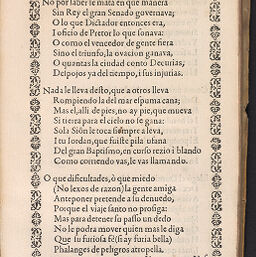 No por saber le mata en que manera
Sin Rey el gran Senado governava;
O lo que Dictador entonces era,
I oficio de Pretor lo que sonava:
O como el vencedor de gente fiera
Sino el triunfo, la ovacion ganava,
O quantas la ciudad conto Decurias,
Despojos ya del tiempo, i sus injurias.
Nada le lleva desto, que a otros lleva
Rompiendo la del mar espuma cana;
Mas el, alli de pies, no ay pie, que mueva
Si tierra para el cielo no se gana:
Sola Siõn le toca siempre a leva,
I tu Iordan, que fuiste pila ufana
Del gran Baptismo, en curso rezio i blando
Como corriendo vas, le vas llamando.
O que dificultades, ò que miedo
(No lexos de razon) la gente amiga
Anteponer pretende a su denuedo,
Porque el viaje santo no prosiga:
Mas para detener su passo un dedo
No le podra mover quien mas le diga
Que su furiosa fe (si ay furia bella)
Phalanges de peligros atropella,